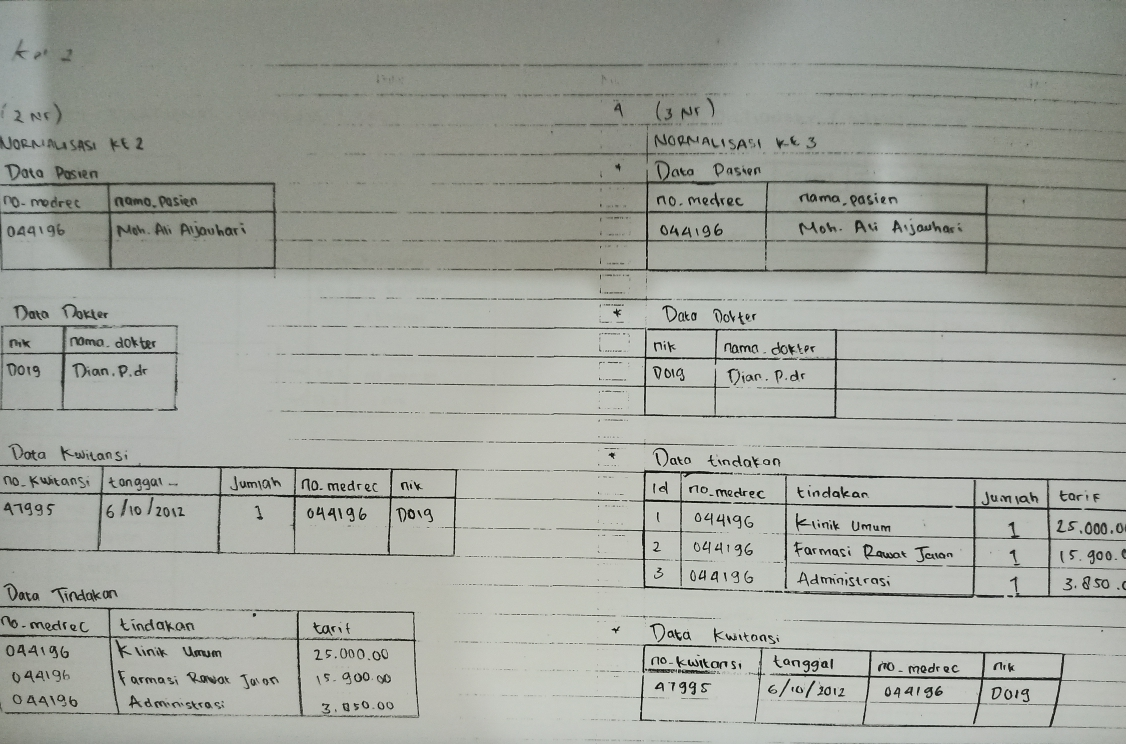 (2 NF)
NORMALISASI KE 2
Data Pasien
no-medrec nama.pasien
044196 Moh. Ali Aijauhari
Data Dokter
nik nama.dokter
D019 Dian.P.dr
Data Kwitansi
no-kwitansi tanggal Jumlah no.medrec nik
47995 6/10/2012 1 044196 D019
Data Tindakan
no-medrec tindakan tarif
044196 Klinik Umum 25.000.00
044196 Farmasi Rawat Jalan 15.900.00
044196 Administrasi 3.850.00
(3 NF)
NORMALISASI KE 3
* Data Pasien
no.medrec nama.pasien
044196 Moh. Ali Aijauhari
* Data Dokter
nik nama.dokter
D019 Dian.P.dr
* Data tindakan
Id no-medrec tindakan Jumlah tarif
1 044196 Klinik Umum 1 25.000.0
2 044196 Farmasi Rawat Jalan 1 15.900.
3 044196 Administrasi 1 3.850.
* Data Kwitansi
no-kwitansi tanggal no-medrec nik
47995 6/10/2012 044196 D019